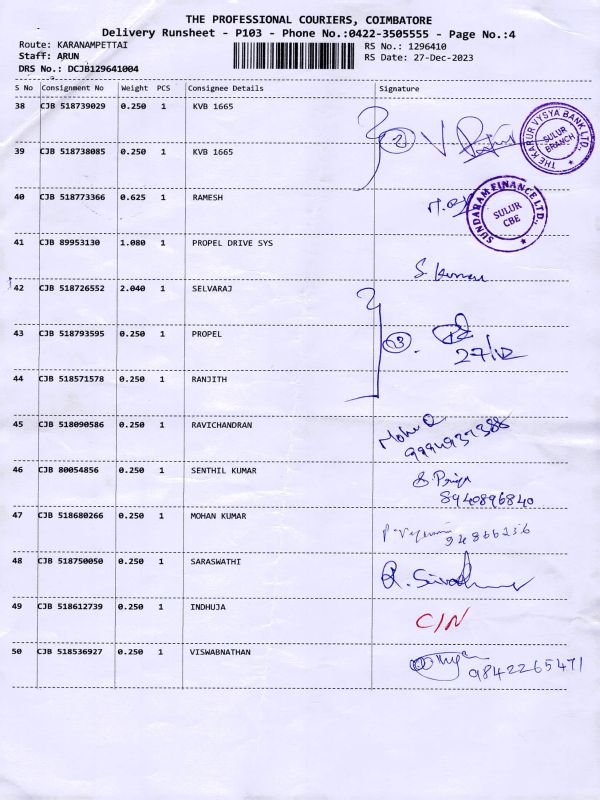 THE PROFESSIONAL COURIERS, COIMBATORE
Delivery Runsheet - P103 - Phone No.:0422-3505555 - Page No.:4
Route: KARANAMPETTAI
RS No.: 1296410
Staff: ARUN
RS Date: 27-Dec-2023
DRS No.: DCJB129641004
S No Consignment No Weight PCS Consignee Details Signature
38 CJB 518739029 0.250 1 KVB 1665
2
THE KARUR VYSYA BANK LTD.,
SULUR
BRANCH
39 CJB 518738085 0.250 1 KVB 1665
40 CJB 518773366 0.625 1 RAMESH
SUNDARAM FINANCE LTD.,
SULUR
CBE
41 CJB 89953130 1.080 1 PROPEL DRIVE SYS
S. Kumar
42 CJB 518726552 2.040 1 SELVARAJ
43 CJB 518793595 0.250 1 PROPEL
3
27/12
44 CJB 518571578 0.250 1 RANJITH
45 CJB 518090586 0.250 1 RAVICHANDRAN
9994937388
46 CJB 80054856 0.250 1 SENTHIL KUMAR
S. Priya
8940896840
47 CJB 518680266 0.250 1 MOHAN KUMAR
48 CJB 518750050 0.250 1 SARASWATHI
49 CJB 518612739 0.250 1 INDHUJA
C/N
50 CJB 518536927 0.250 1 VISWABNATHAN
9842265471